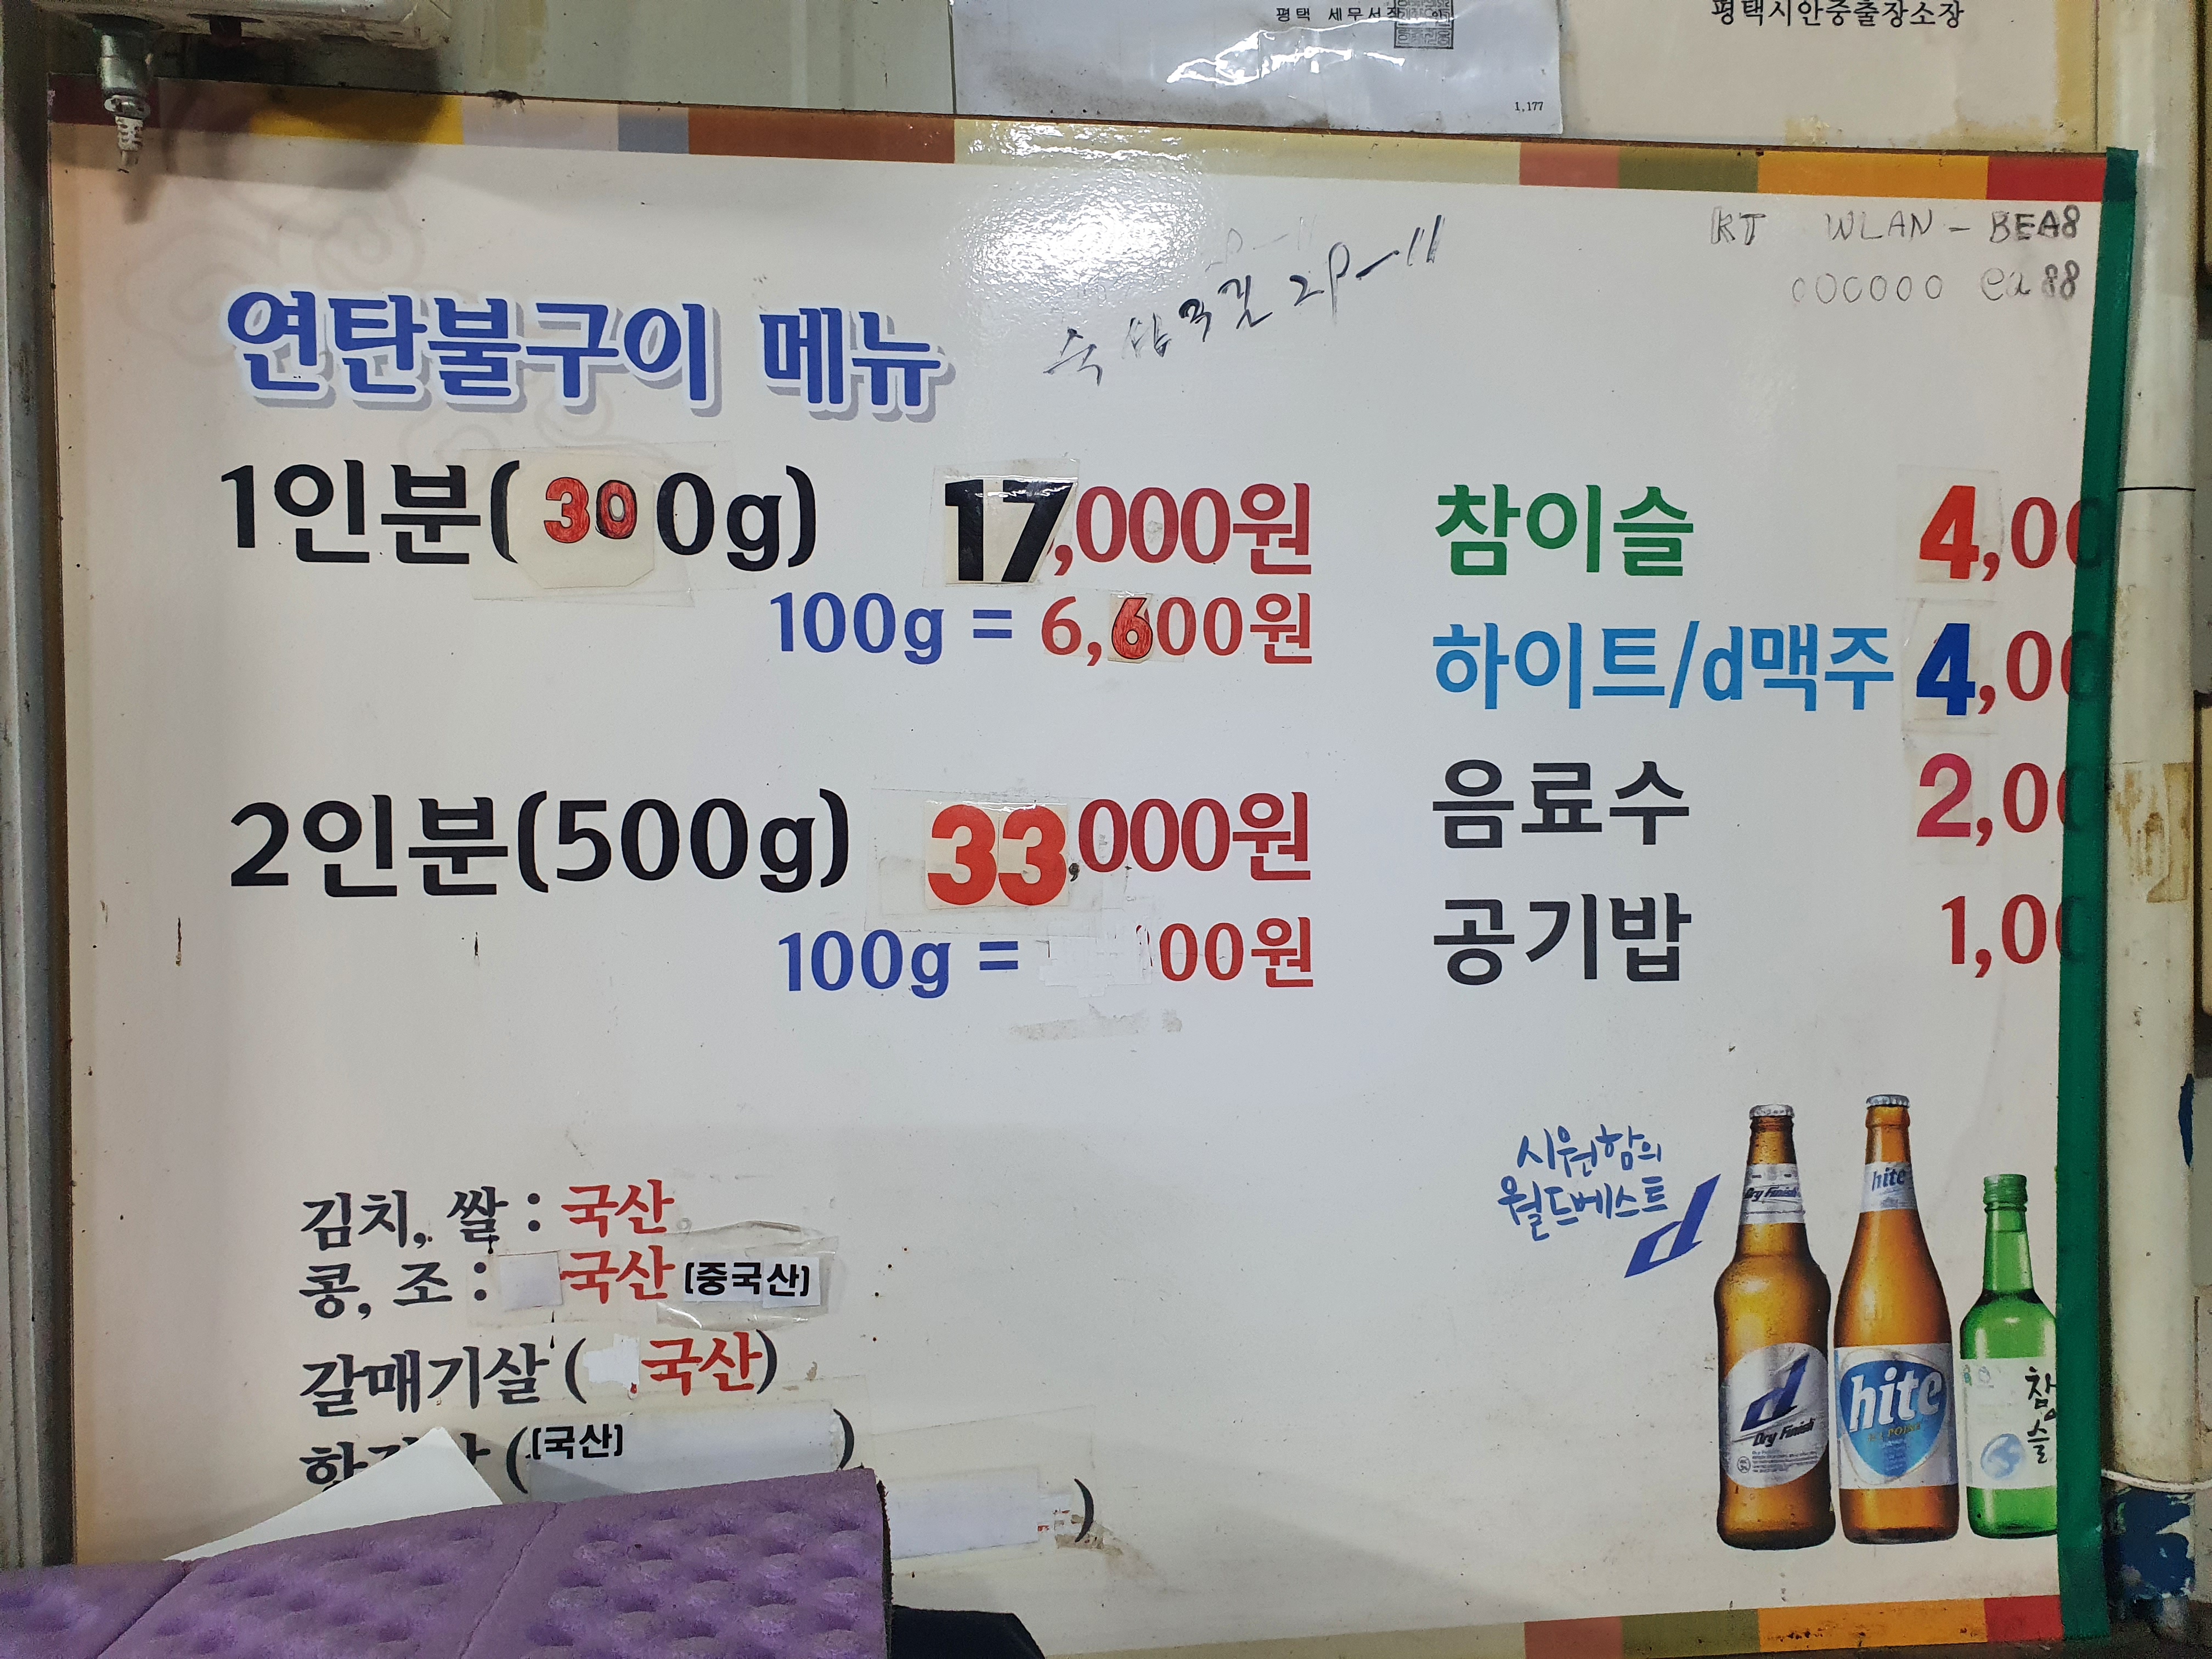 평택 세무서장
1,177
평택시안중출장소장
KT WLAN-BEA8
000000ea88
2P-11
연탄불구이 메뉴
1인분(300g) 17,000원
100g = 6,600원
2인분(500g) 33,000원
100g = 00원
참이슬 4,00
하이트/d맥주 4,00
음료수 2,00
공기밥 1,00
김치, 쌀 : 국산
콩, 조 : 국산 (중국산)
갈매기살 (국산)
(국산) )
)
시원함의
월드베스트
d
Dry Finish
hite
d
Dry Finish
hite
참
슬